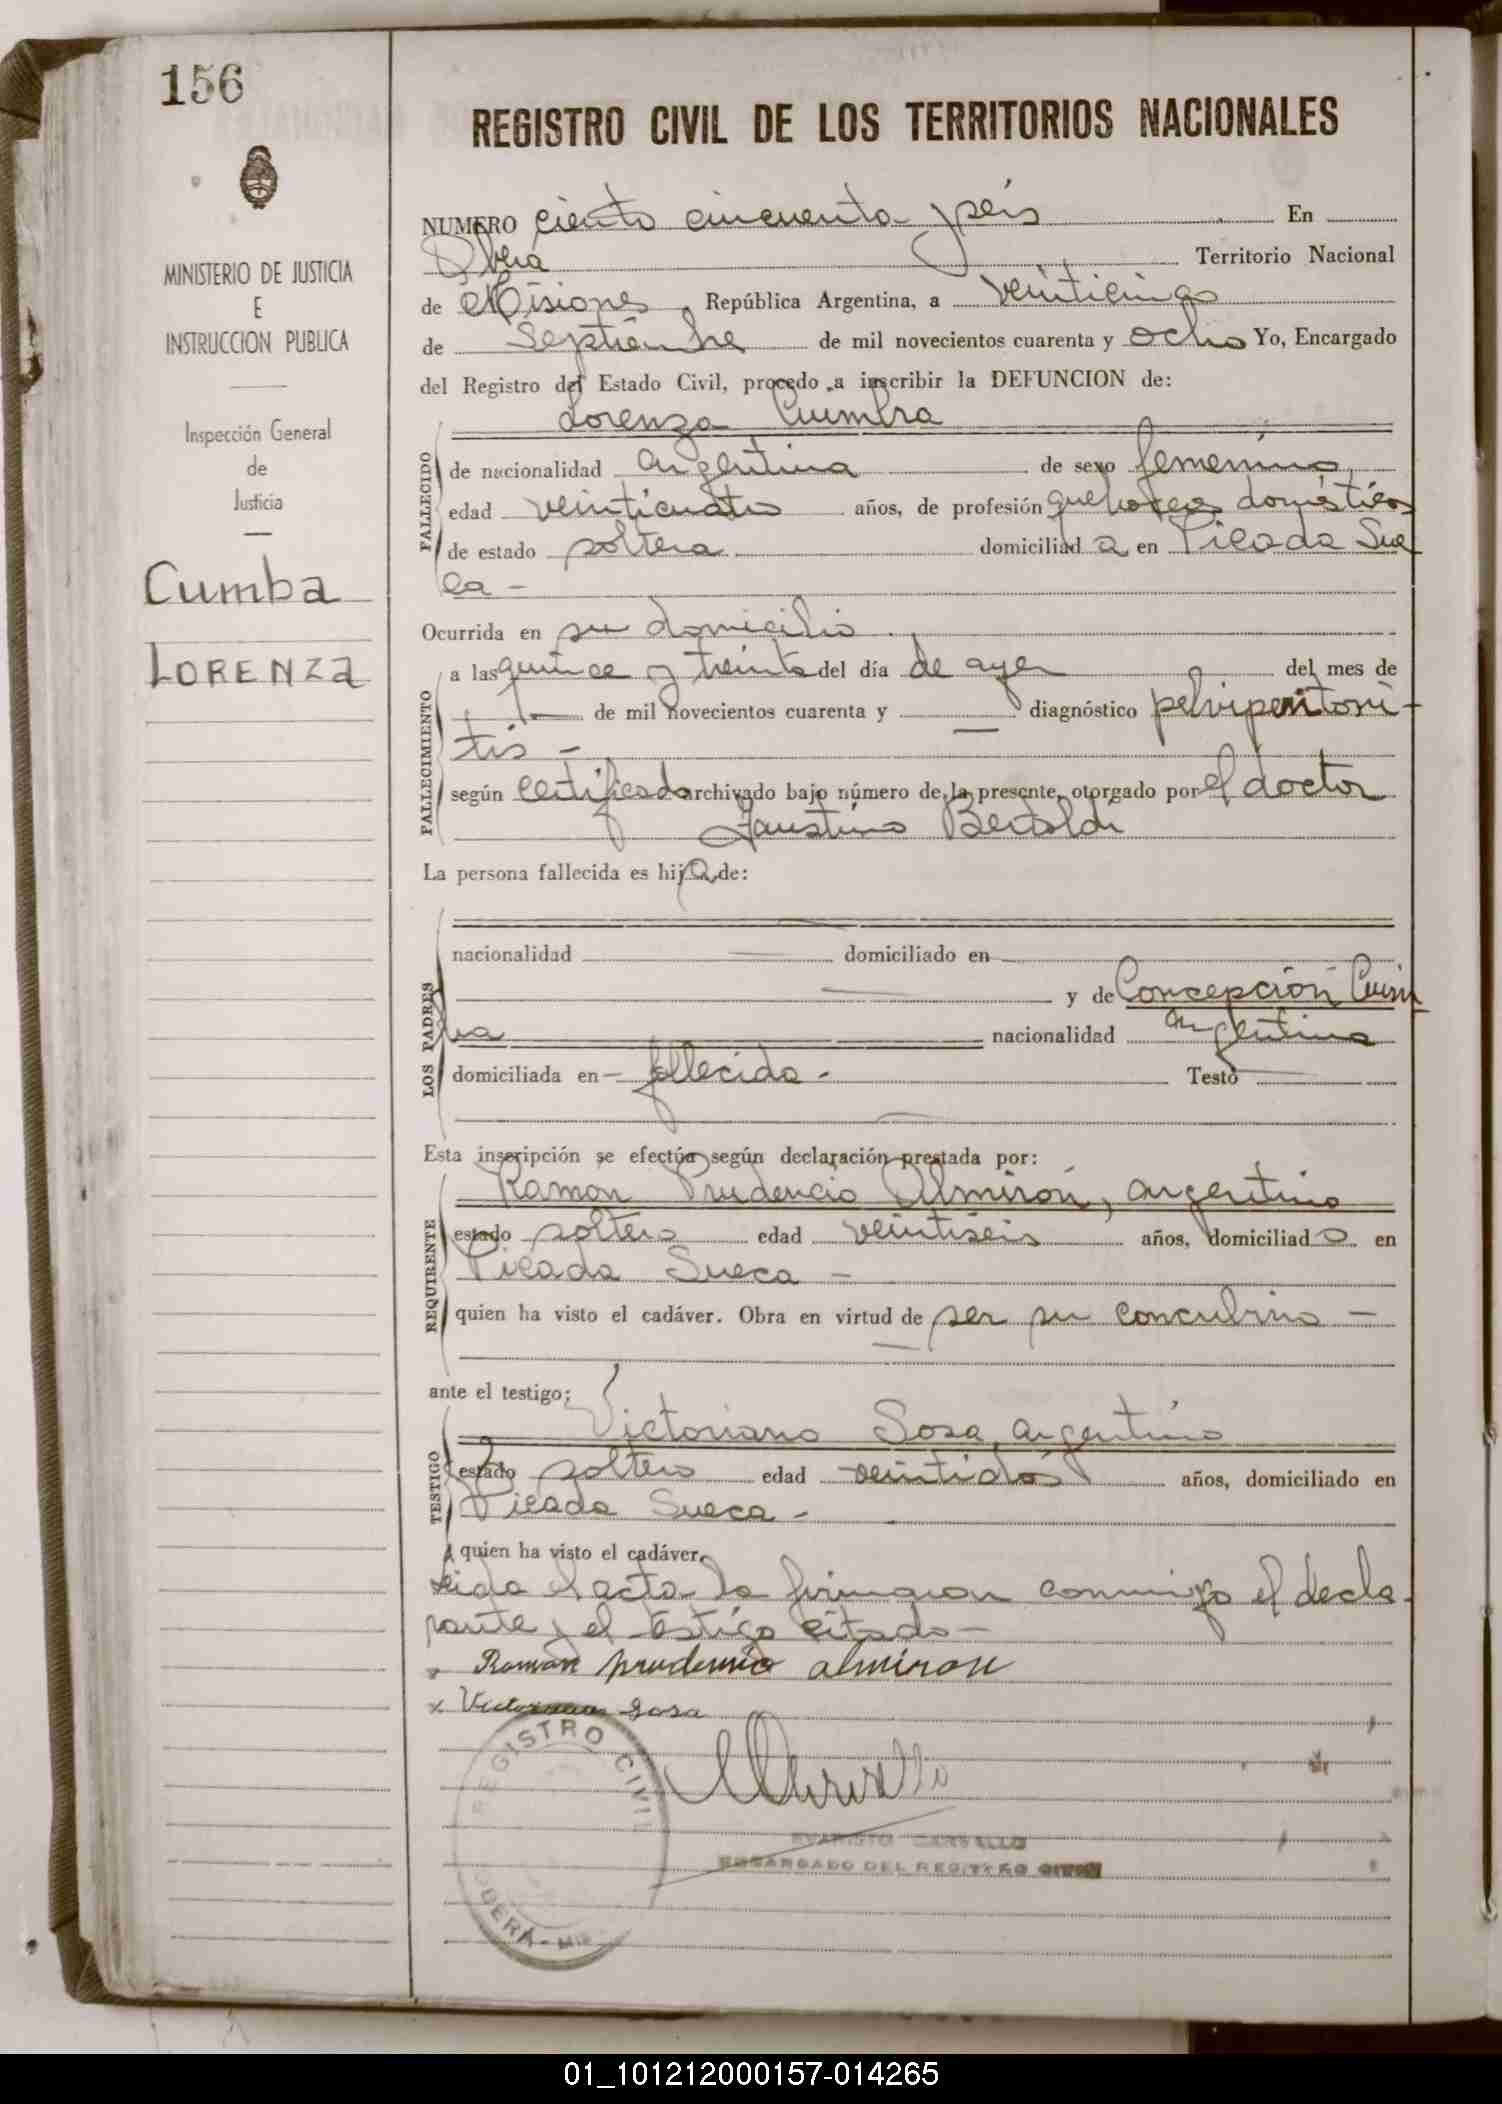 156
REGISTRO CIVIL DE LOS TERRITORIOS NACIONALES
MINISTERIO DE JUSTICIA
E
INSTRUCCION PUBLICA
Inspección General
de
Justicia
Cumba
LORENZA
NUMERO ciento cincuenta y seis En
Oberá Territorio Nacional
de Misiones, República Argentina, a veinticinco
de Septiembre de mil novecientos cuarenta y ocho Yo, Encargado
del Registro del Estado Civil, procedo a inscribir la DEFUNCION de:
Lorenza Cuimbra
FALLECIDO
de nacionalidad argentina de sexo femenino,
edad veinticuatro años, de profesión quehaceres domésticos
de estado soltera domiciliada en Picada Sue
ca -
Ocurrida en su domicilio
FALLECIMIENTO
a las quince y treinta del día de ayer del mes de
— de mil novecientos cuarenta y — diagnóstico pelviperitoni-
tis -
según certificado archivado bajo número de la presente, otorgado por el doctor
Faustino Bertoldi
La persona fallecida es hija de:
LOS PADRES
nacionalidad — domiciliado en
— y de Concepción Cuim
ba nacionalidad argentina
domiciliada en - fallecida - Testó
Esta inscripción se efectúa según declaración prestada por:
REQUIRENTE
Ramon Prudencio Almirón, argentino
estado soltero edad veintiseis años, domiciliado en
Picada Sueca -
quien ha visto el cadáver. Obra en virtud de ser su concubino -
ante el testigo:
TESTIGO
Victoriano Sosa, argentino
estado soltero edad veintidos años, domiciliado en
Picada Sueca -
quien ha visto el cadáver.
Leida el acta la firmaron conmigo el decla-
rante y el testigo citado -
Ramon prudencio almiron
x Victoriano Sosa
REGISTRO CIVIL
OBERÁ - Mis
EVARISTO CARVALLO
ENCARGADO DEL REGISTRO CIVIL
01_101212000157-014265